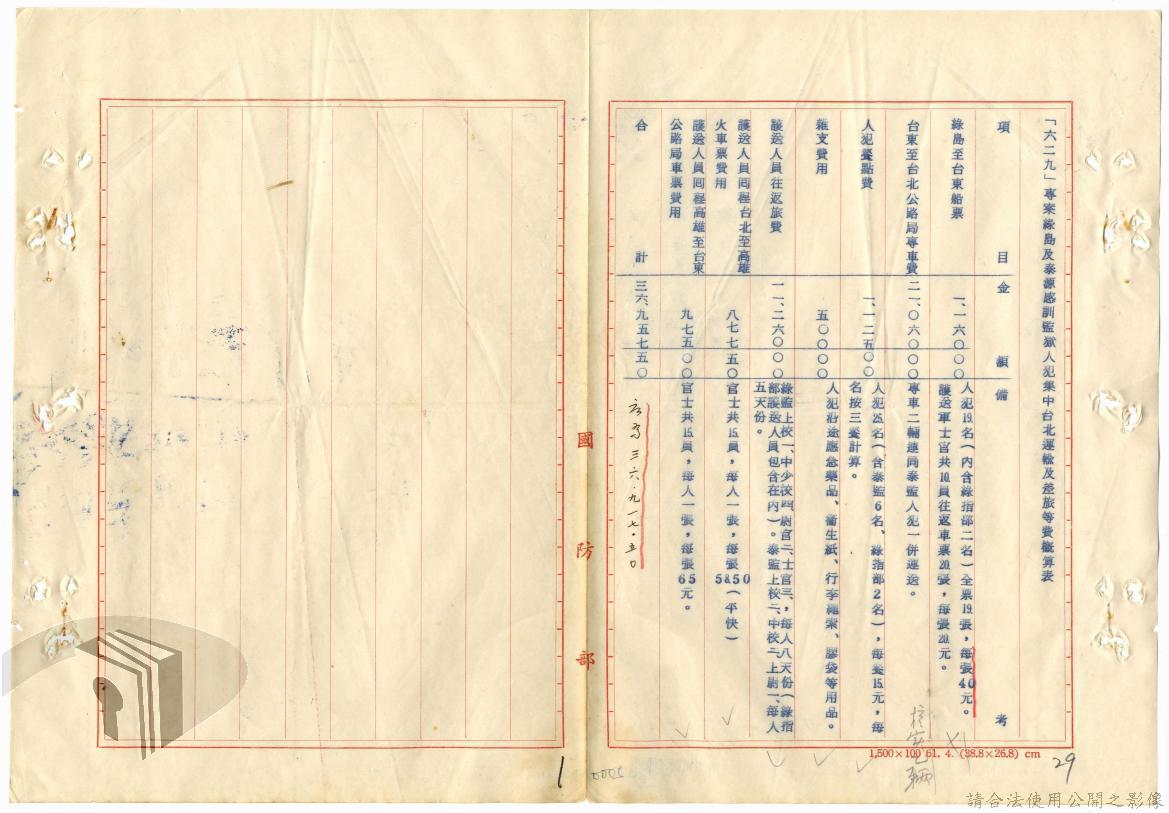 「六二九」專案綠島及泰源感訓監獄人犯集中台北運輸及差旅等費概算表
項目 金額 備考
綠島至台東船票 一、一六〇〇〇 人犯19名(內含綠指部二名)全票19張,每張40元。
護送軍士官共10員往返車票20張,每張20元。
台東至台北公路局專車費 二一、〇六〇〇〇 專車二輛連同泰監人犯一併運送。
人犯餐點費 一、一二五〇〇 人犯25名(含泰監6名、綠指部2名),每餐15元,每
名按三餐計算。
雜支費用 五〇〇〇〇 人犯沿途應急藥品、衞生紙、行李繩索、膠袋等用品。
護送人員往返旅費 一一、二六〇〇〇 綠監上校一、中少校四、尉官二、士官三,每人八天份(綠指
部護送人員包含在內)。泰監上校二、中校二、上尉一、每人
五天份。
護送人員回程台北至高雄
火車票費用 八七七五〇 官士共15員,每人一張,每張58.50(平快)
護送人員回程高雄至台東
公路局車票費用 九七五〇〇 官士共15員,每人一張,每張65元。
合計 三六、九五七五〇
三六、九一七.五〇
國防部
1,500×100 61. 4. (38.8×26.8) cm
29
1
請合法使用公開之影像